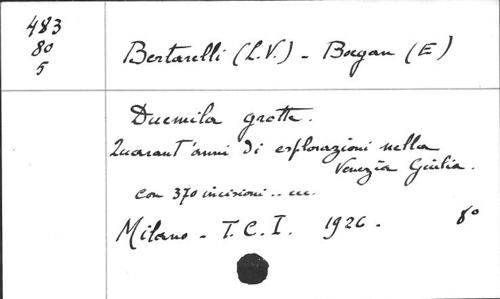 483
80
5
Bertarelli (L.V.) - Boegan (E)
Duemila grotte.
Quarant'anni di esplorazioni nella
Venezia Giulia.
con 370 incisioni .. ecc.
Milano - T.C.I. 1926 - 8º